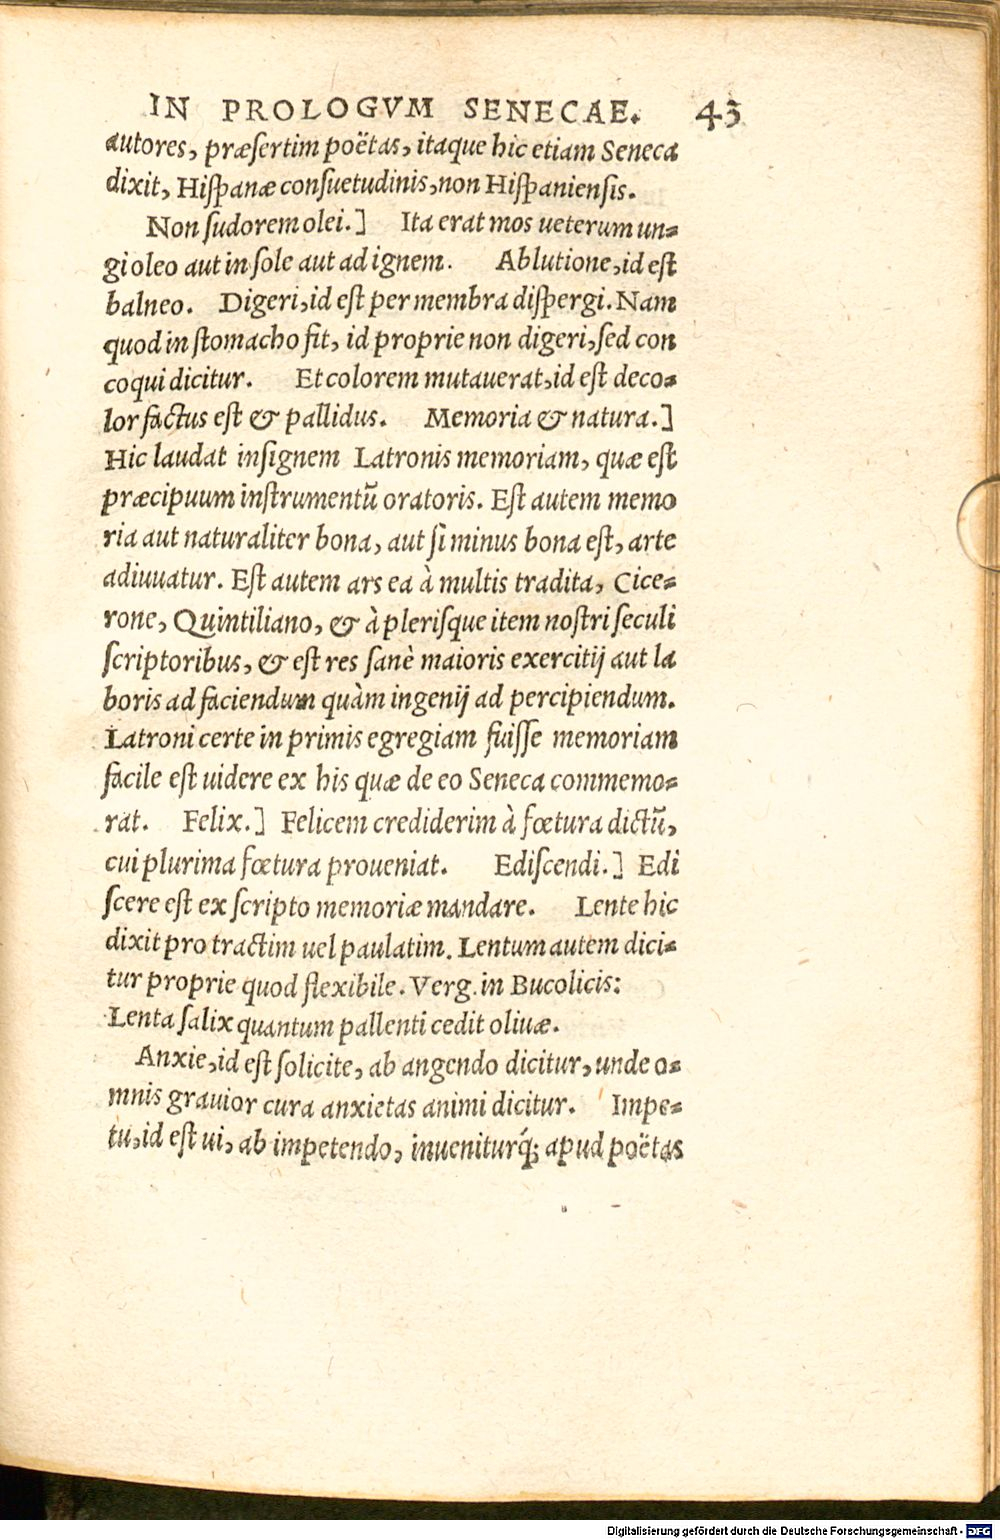 IN PROLOGVM SENECAE. 43
autores, præsertim poëtas, itaque hic etiam Seneca
dixit, Hispanæ consuetudinis, non Hispaniensis.
Non sudorem olei.] Ita erat mos ueterum un-
gi oleo aut in sole aut ad ignem. Ablutione, id est
balneo. Digeri, id est per membra dispergi. Nam
quod in stomacho fit, id proprie non digeri, sed con
coqui dicitur. Et colorem mutauerat, id est deco-
lor factus est & pallidus. Memoria & natura.]
Hic laudat insignem Latronis memoriam, quæ est
præcipuum instrumentũ oratoris. Est autem memo
ria aut naturaliter bona, aut si minus bona est, arte
adiuuatur. Est autem ars ea à multis tradita, Cice-
rone, Quintiliano, & à plerisque item nostri seculi
scriptoribus, & est res sanè maioris exercitij aut la
boris ad faciendum quàm ingenij ad percipiendum.
Latroni certe in primis egregiam fuisse memoriam
facile est uidere ex his quæ de eo Seneca commemo-
rat. Felix.] Felicem crediderim à fœtura dictũ,
cui plurima fœtura proueniat. Ediscendi.] Edi
scere est ex scripto memoriæ mandare. Lente hic
dixit pro tractim uel paulatim. Lentum autem dici-
tur proprie quod flexibile. Verg. in Bucolicis:
Lenta salix quantum pallenti cedit oliuæ.
Anxie, id est solicite, ab angendo dicitur, unde o-
mnis grauior cura anxietas animi dicitur. Impe-
tu, id est ui, ab impetendo, inueniturq́; apud poëtas
Digitalisierung gefördert durch die Deutsche Forschungsgemeinschaft - DFG